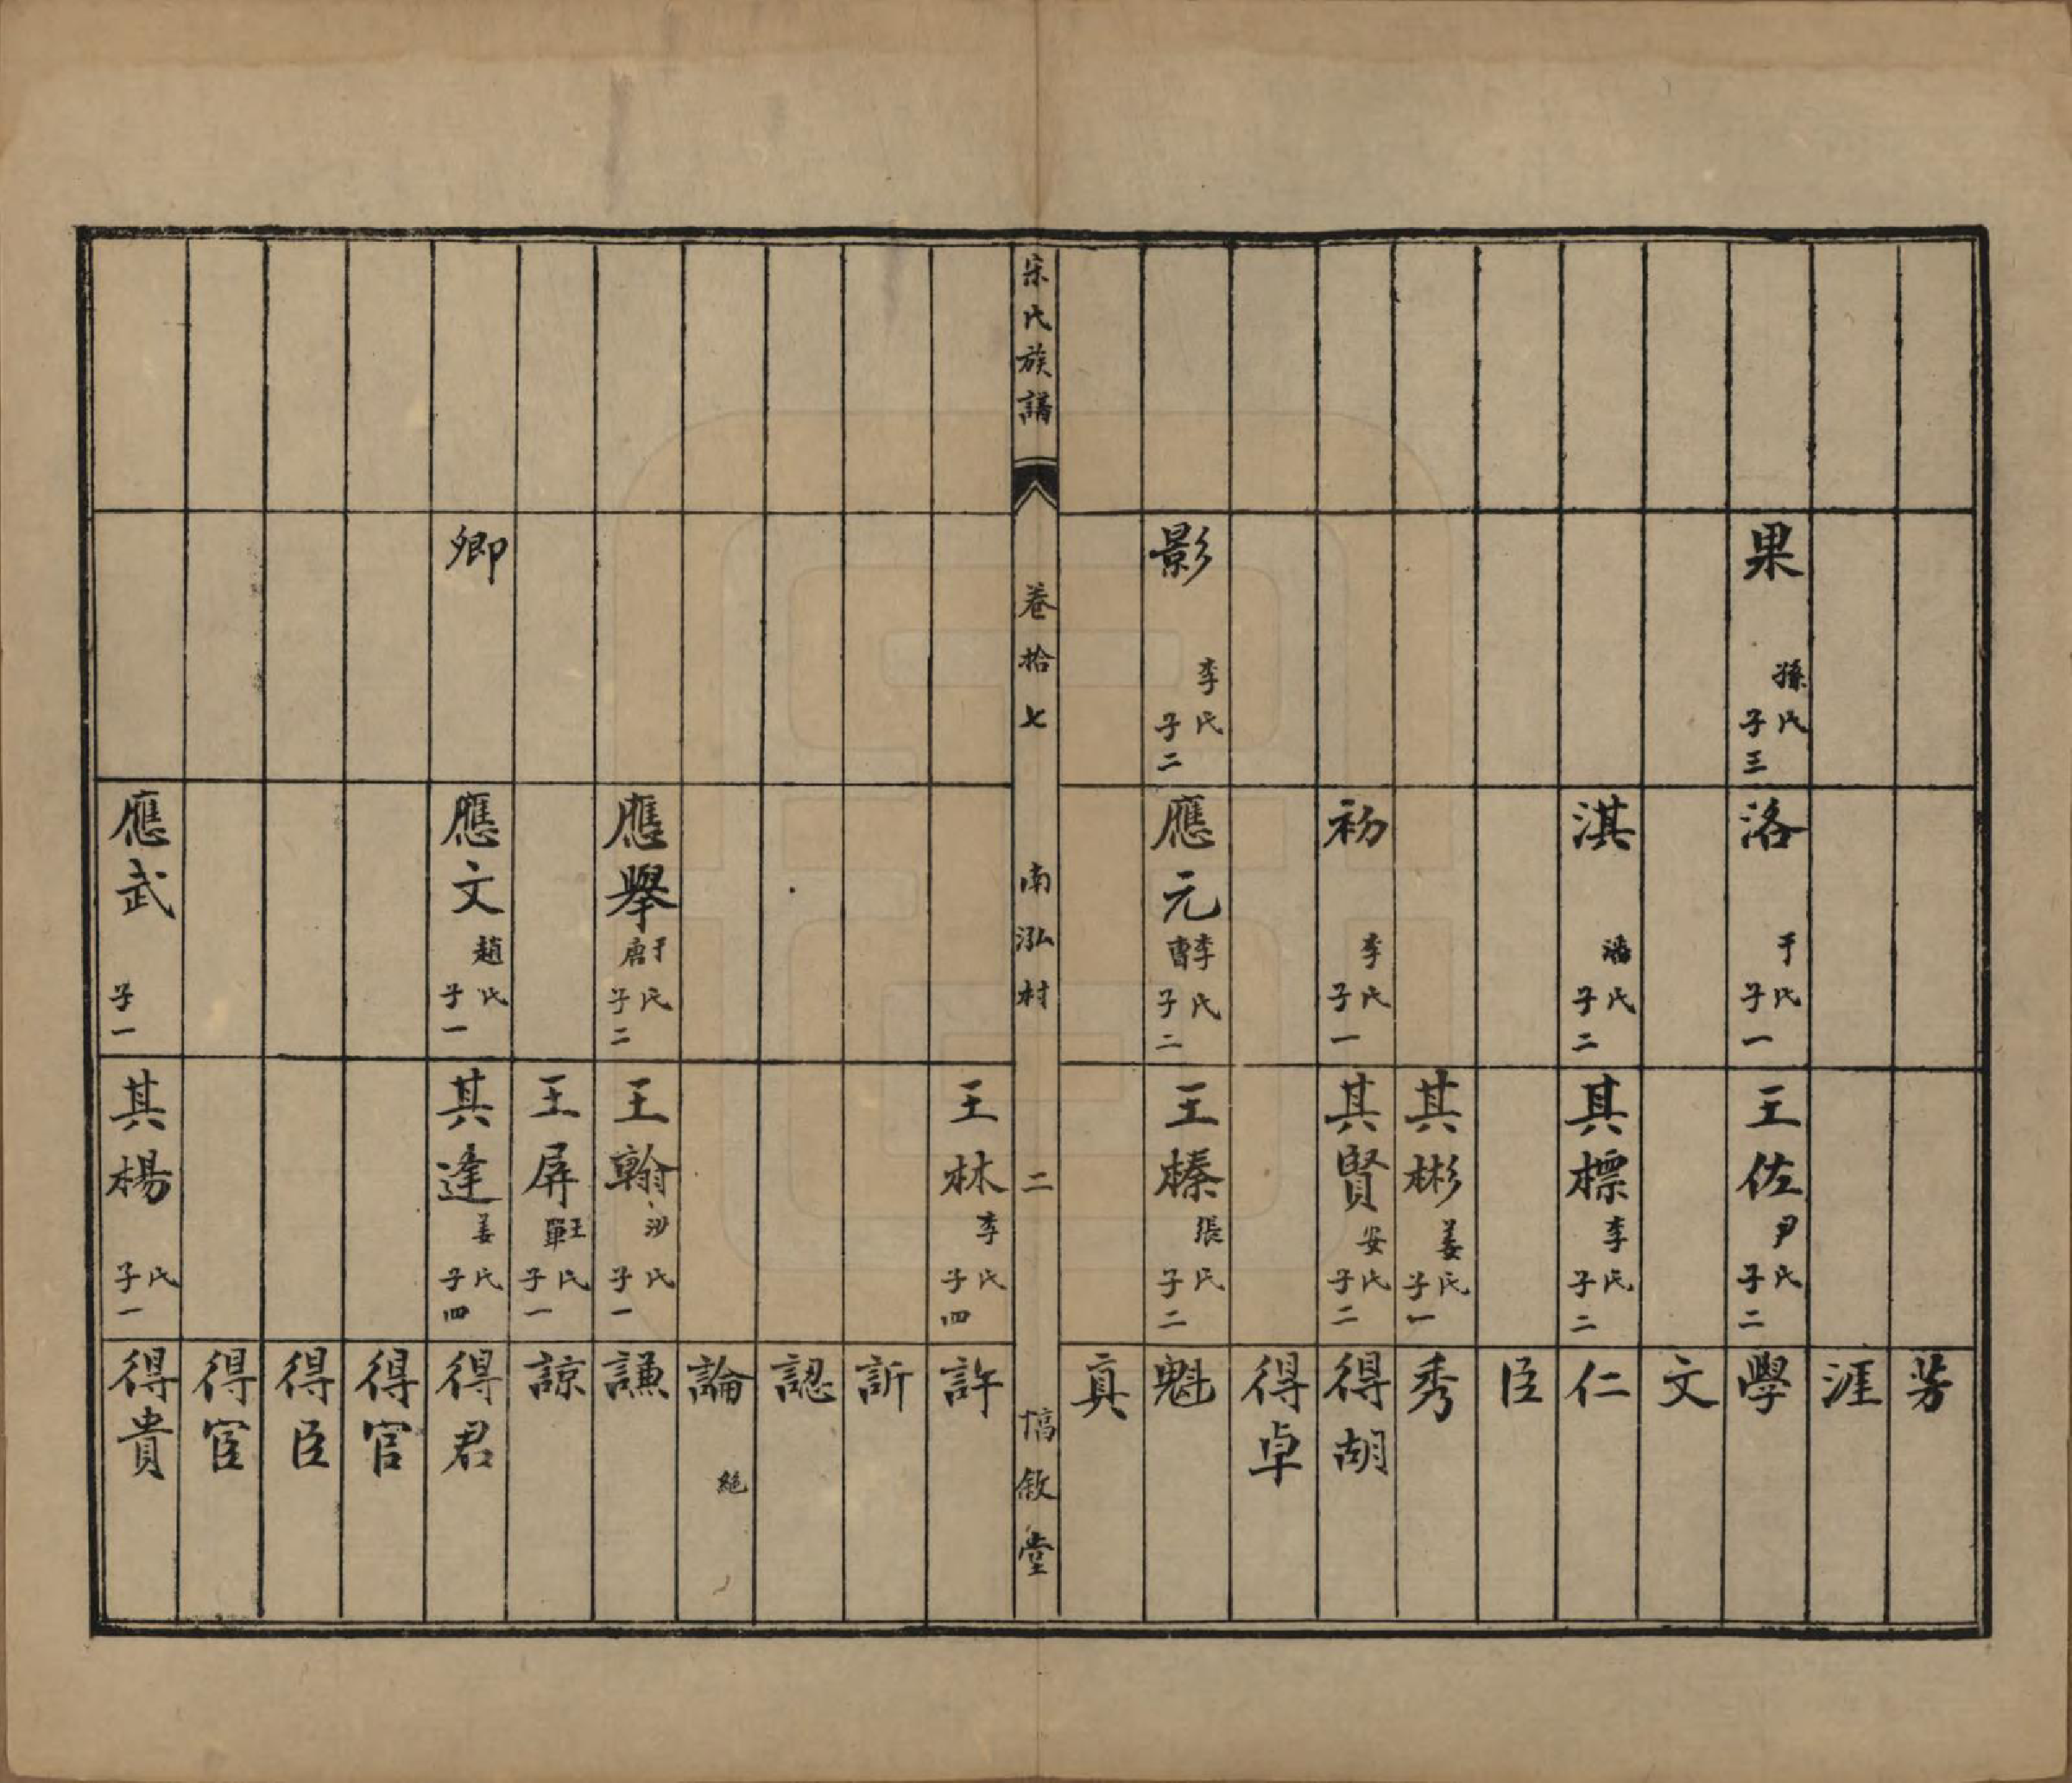 芳
涯
果 孫氏 子三
洛 于氏 子一
王佐 尹氏 子二
學
文
淇 潘氏 子二
其標 李氏 子二
仁
臣
其彬 姜氏 子一
秀
初 李氏 子一
其賢 安氏 子二
得胡
得卓
影 李氏 子二
應元 李曹氏 子二
王榛 張氏 子二
魁
真
宋氏族譜 卷拾七 南泓村 二 敘堂
王林 李氏 子四
許
訢
認
論 絕
應舉 于唐氏 子二
王翰 沙氏 子一
謙
王屏 王單氏 子一
諒
卿
應文 趙氏 子一
其逢 姜氏 子四
得君
得官
得臣
得宦
應武 子一
其楊 氏 子一
得貴